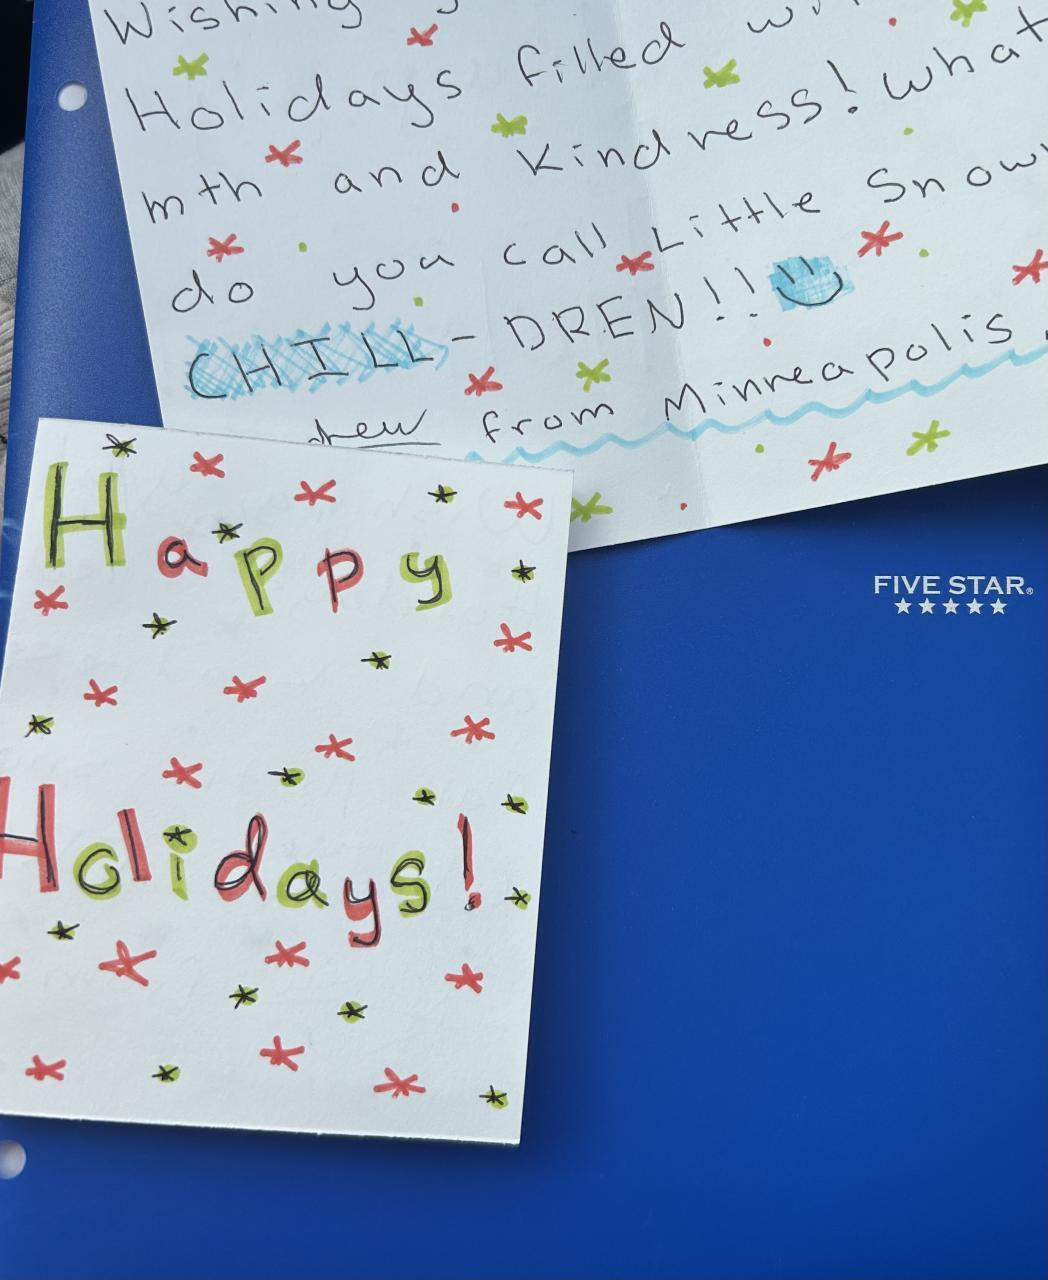 Wishing
Holidays filled
mth and Kindness! What
do you call Little Snow
CHILL-DREN!!
drew from Minneapolis.
Happy
Holidays!
FIVE STAR®